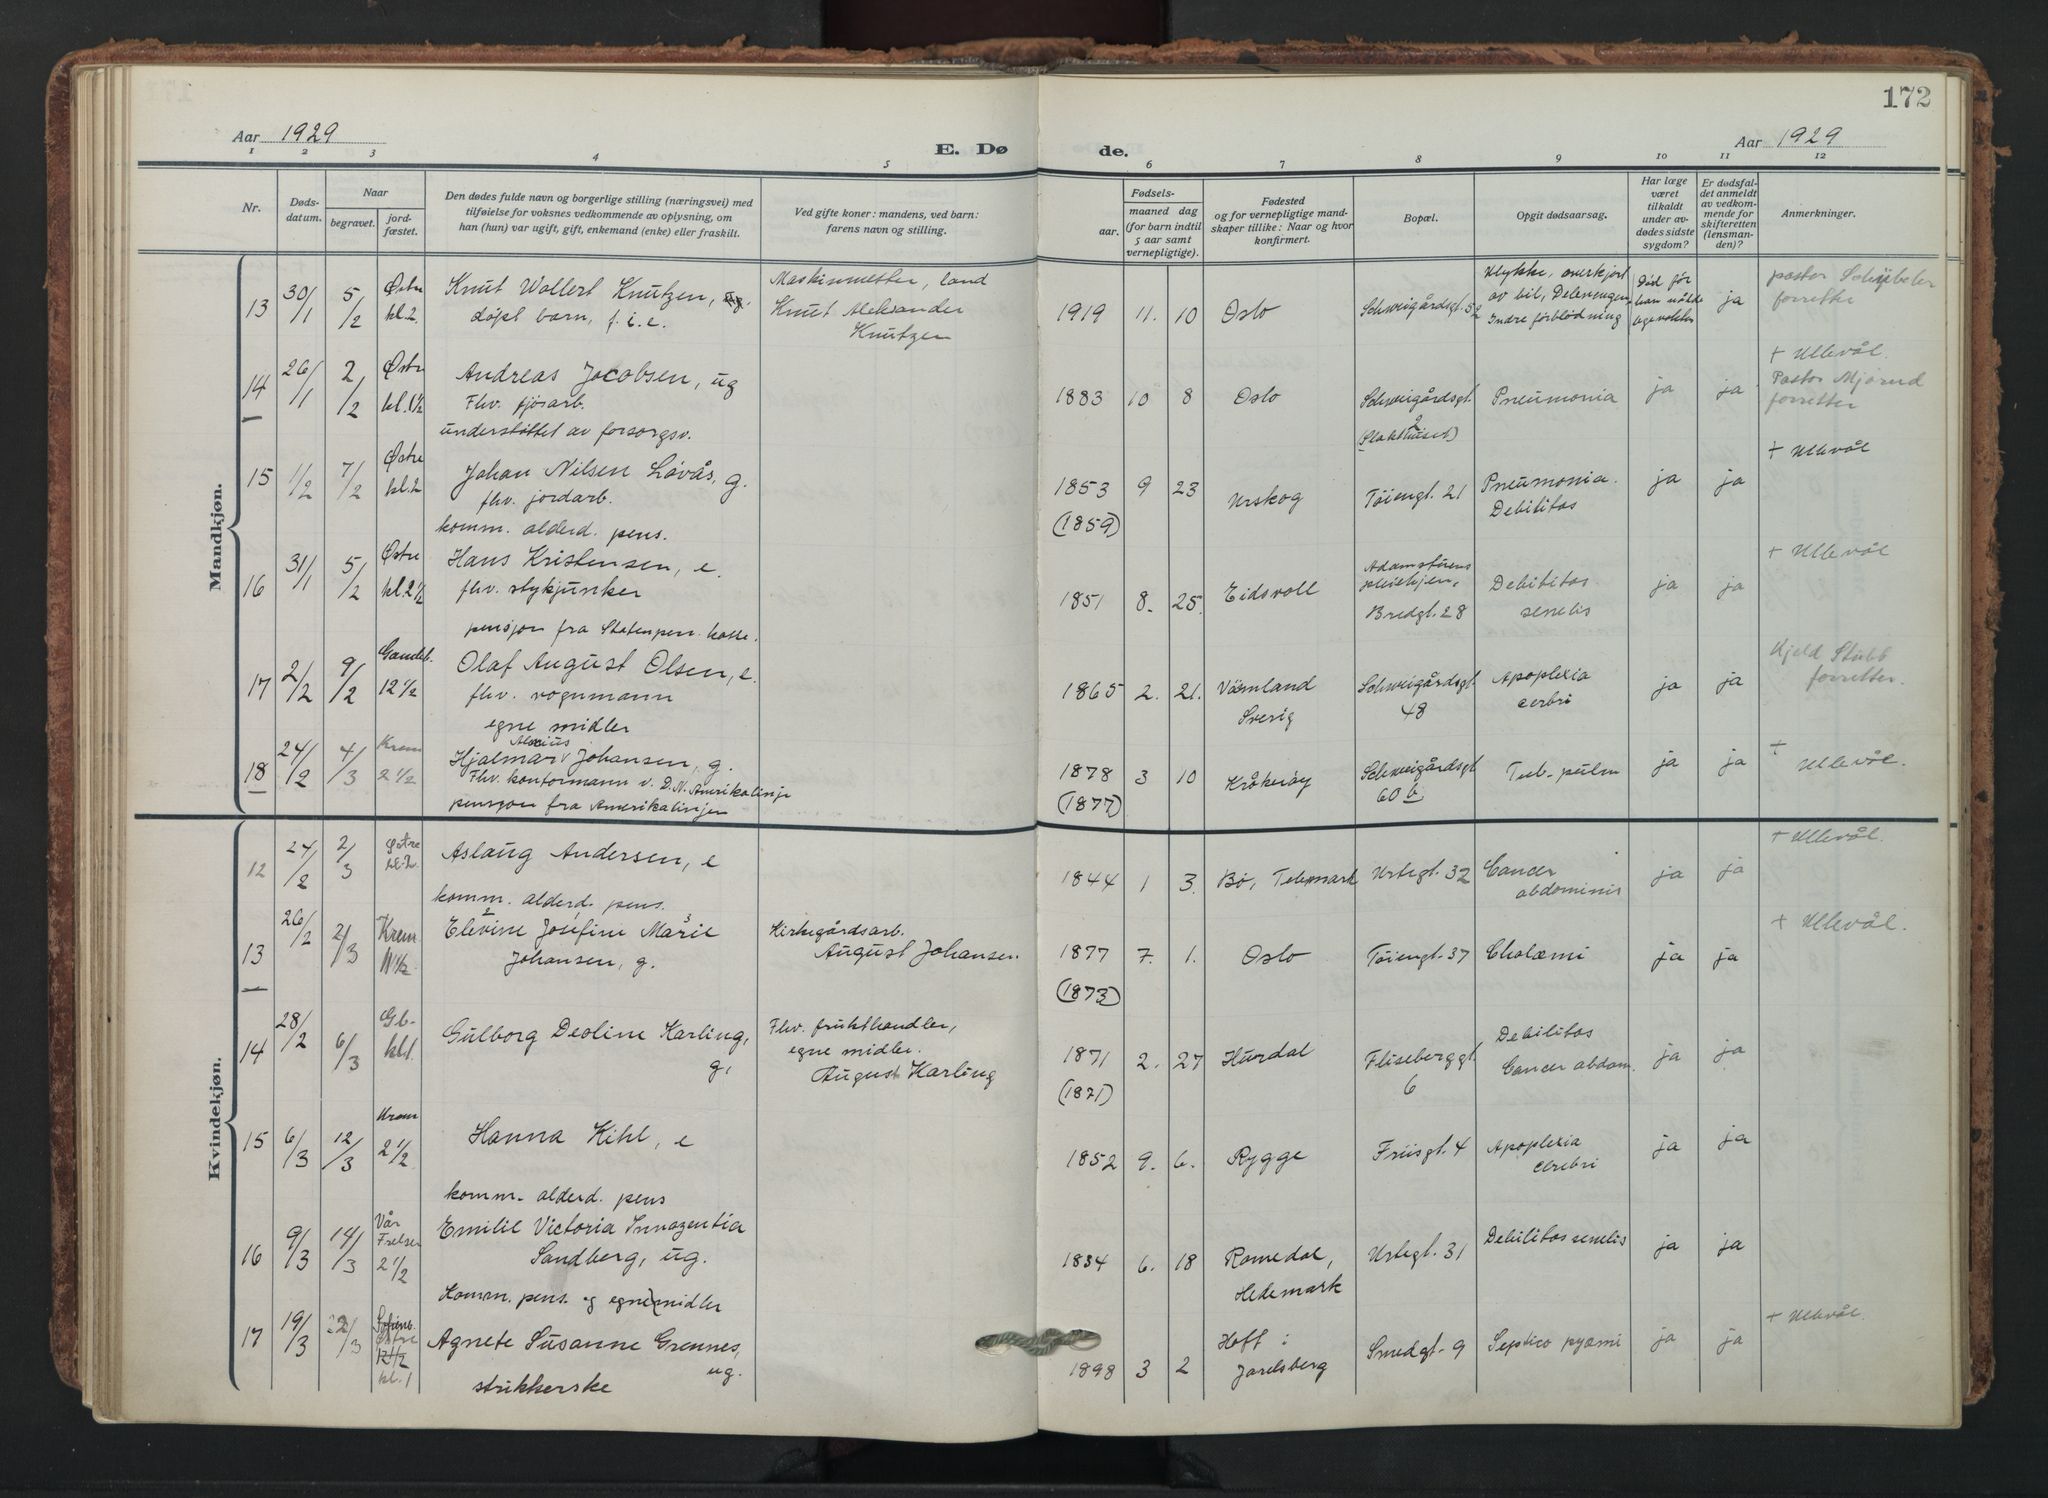 172
Aar 1929
E. Dø
de.
Aar 1929
1 2 3 4 5 6 7 8 9 10 11 12
Nr.
Dødsdatum.
Naar
begravet.
jordfæstet.
Den dødes fulde navn og borgerlige stilling (næringsvei) med
tilføielse for voksnes vedkommende av oplysning, om
han (hun) var ugift, gift, enkemand (enke) eller fraskilt.
Ved gifte koner: mandens, ved barn:
farens navn og stilling.
Fødsels-
aar.
maaned dag
(for barn indtil
5 aar samt
vernepligtige).
Fødested
og for vernepligtige mand-
skaper tillike: Naar og hvor
konfirmert.
Bopæl.
Opgit dødsaarsag.
Har læge
været
tilkaldt
under av-
dødes sidste
sygdom?
Er dødsfal-
det anmeldt
av vedkom-
mende for
skifteretten
(lensman-
den)?
Anmerkninger.
Mandkjøn.
13 30/1 5/2 Østre kl. 2. Knut Wollert Knutzen,
døpt barn, f. i. e.
Maskinmester, land
Knut Aleksander
Knutzen
1919 11. 10 Oslo Schweigårdsgt. 52
Ulykke, overkjørt
av bil, Delenengen,
Indre forblødning
Død før
han nådde
ja
pastor Schübeler
forretter
14 26/1 2/2 Østre kl. 1 1/2 Andreas Jacobsen, ug
Fhv. fjøsarb.
understøttet av forsorgsv.
1883 10 8 Oslo Schweigårdsgt. 2
(Slakthuset)
Pneumonia ja ja
+ Ullevål.
Pastor Mjørud
forretter
15 1/2 7/2 Østre kl. 2 Johan Nilsen Løvås, g.
fhv. jordarb.
komm. alderd. pens.
1853 9 23 Urskog Tøiengt. 21
(1859)
Pneumonia.
Debilitas
ja ja + Ullevål
16 31/1 5/2 Østre kl. 2 1/2 Hans Kristensen, e.
fhv. stykjunker
pensjon fra Statenpen. kasse.
1851 8. 25. Eidsvoll
Adamstuens
pleiehjem,
Bredgt. 28
Debilitas
senelis
ja ja + Ullevål
17 2/2 9/2 Gamleb. 12 1/2 Olaf August Olsen, e.
fhv. vognmann
egne midler
1865 2. 21. Värmland
Sverig
Schweigårdsgt.
48
Apoplexia
cerbri
ja ja
Kjeld Stubb
forretter.
18 24/2 4/3 Krem 2 1/2 Hjalmar Alexius Johansen, g.
Fhv. kontormann v. D. N. Amerikalinje
pensjon fra Amerikalinjen
1878 3 10 Kråkerøy
(1877)
Schweigårdsgt
60 b
Tub. pulm ja ja + Ullevål.
Kvindekjøn.
12 24/2 2/3 Østre kl. 2 Aslaug Andersen, e
komm. alderd. pens.
1844 1 3. Bø, Telemark Urtegt. 32
Cancer
abdominis
ja ja + Ullevål.
13 26/2 2/3 Krem 11 1/2 Elevine Josefine Marie
Johansen, g.
Kirkegårdsarb.
August Johansen.
1877 7. 1. Oslo Tøiengt. 37 Cholæmi ja ja + Ullevål.
(1873)
14 28/2 6/3 Gb. kl 1. Gulborg Deoline Karling,
g,
Fhv. frukthandler,
egne midler.
August Karling
1871 2. 27 Hurdal Fliseberggt,
6
(1871)
Debilitas
Cancer abdom.
ja ja
15 6/3 12/3 Krem 2 1/2 Hanna Kihl, e
komm. alderd. pens
1852 9. 6. Rygge Friisgt. 4
Apoplexia
cerebri
ja ja
16 9/3 14/3 Vår Frelser 2 1/2 Emilie Victoria Innozentia
Sandberg, ug.
Komm. pens. og egne midler
1834 6. 18 Romedal,
Hedemark
Urtegt. 31 Debilitas senelis ja ja
17 19/3 22/3 Østre 12 1/2 kl. 1 Agnete Susanne Grennes,
ug.
strikkerske
1898 3 2
Hoff i
Jarlsberg
Smedgt. 9 Septico pyæmi ja ja + Ullevål.